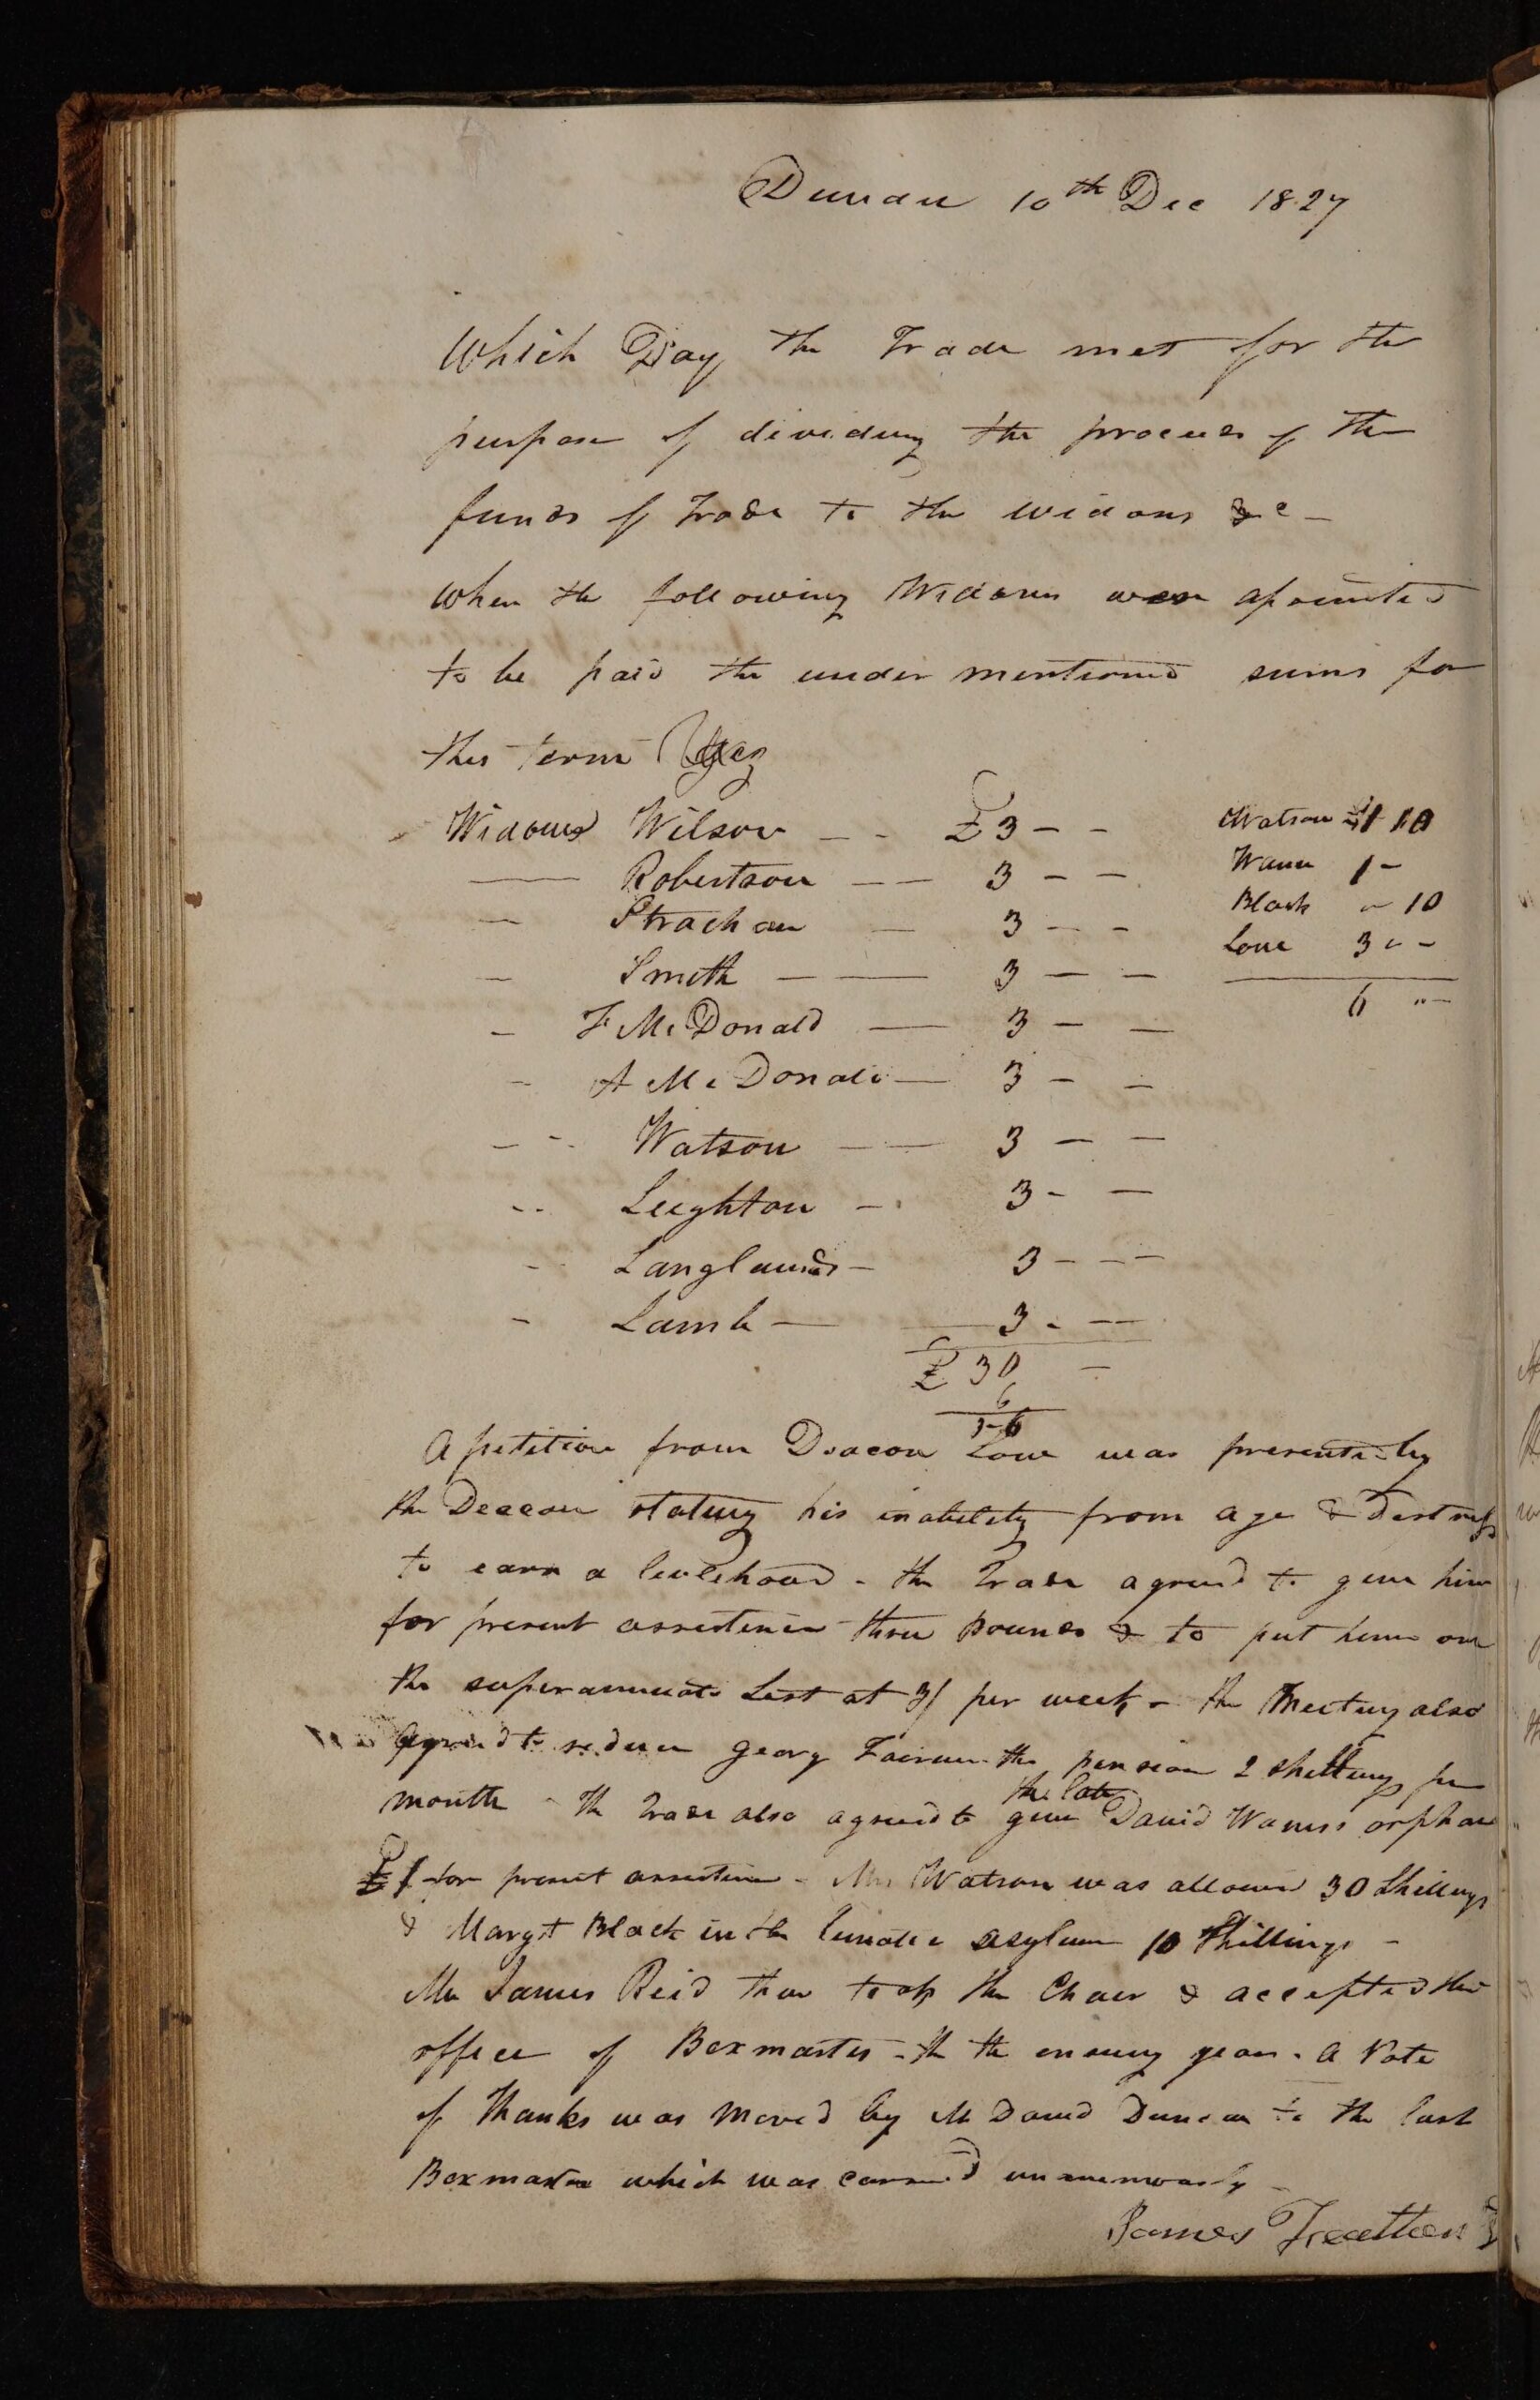 Dundee 10th Dec 1827
Which Day the Trade met for the
purpose of dividing the proceeds of the
funds of Trade to the widows &c -
when the following Widows were apointed
to be paid the under mentioned sums for
this term
Widows Wilson - - £3 - -
— Robertson — — 3 - -
— Strachan — 3 - -
— Smith — — 3 — —
- F McDonald — 3 - —
- A McDonald — 3 - -
- - Watson — — 3 — —
- - Leighton - 3 - —
- Langlands - 3 - - -
- Lamb — 3 - —
£ 30 -
6
36
Watson £1 10
Wann 1 -
Black - 10
Low 3 - -
6 " -
A petition from Deacon Low was presented by
the Deacon stating his inability from age & Distress
to earn a livlehood - the Trade agreed to give him
for present assistence three pounds & to put him on
the superannuate List at 3/ per week - the Meeting also
Agreed to reduce Georg pension 2 shillings per
month - The Trade also agreed to give the late David Wanns orphan
£1 for present assistence - Mrs Watson was allowed 30 Shillings
& Margt Black in the lunatic asylum 10 Shillings -
Mr James Reid then took the Chair & accepted the
office of Boxmaster - the ensuing year - A Vote
of Thanks was Moved by Mr David Duncan to the last
Boxmaster which was carried unanimously
James